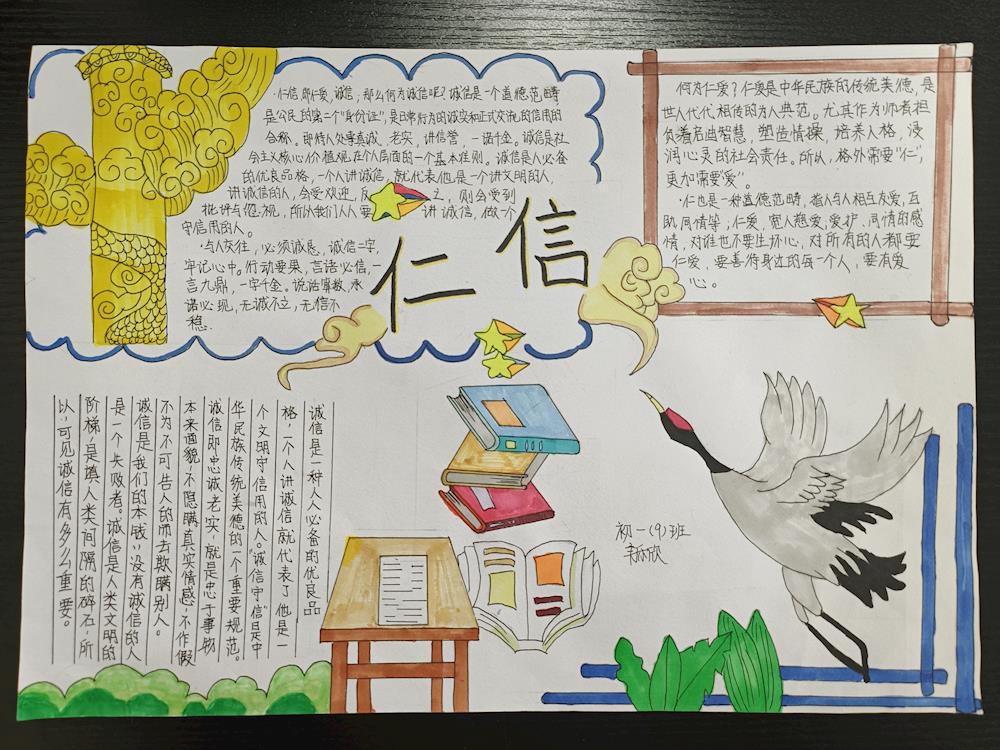 ·仁信即仁爱,诚信,那么何为诚信呢?诚信是一个道德范畴
是公民的第一个"身份证",是日常行为的诚实和正式交流的信用的
合称。即待人处事真诚、老实、讲信誉,一诺千金。诚信是社
会主义核心价值观在个人层面的一个基本准则。诚信是人必备
的优良品格,一个人讲诚信,就代表他是一个讲文明的人,
讲诚信的人,会受欢迎,反之,则会受到
批评与忽视,所以我们人人要讲诚信,做个
守信用的人。
·与人交往,必须诚恳,诚信二字,
牢记心中。行动要果,言语必信,一
言九鼎,一字千金。说话算数,承
诺必现,无诚不立,无信不
稳.
仁信
何为仁爱?仁爱是中华民族的传统美德,是
世人代代相传的为人典范。尤其作为师者担
负着启迪智慧,塑造情操,培养人格,浸
润心灵的社会责任。所以,格外需要"仁",
更加需要"爱"。
·仁也是一种道德范畴,指人与人相互友爱,互
助,同情等,仁爱,宽人慈爱,爱护,同情的感
情,对谁也不要生坏心,对所有的人都要
仁爱,要善待身边的每一个人,要有爱
心。
诚信是一种人人必备的优良品
格,一个人讲诚信就代表了他是一
个文明守信用的人。"诚信守信"是中
华民族传统美德的一个重要规范。
诚信即忠诚老实,就是忠于事物
本来面貌,不隐瞒真实情感,不作假
不为不可告人的而去欺瞒别人。
诚信是我们的本钱,没有诚信的人
是一个失败者。诚信是人类文明的
阶梯,是填人类间隔的碎石,所
以,可见诚信有多么重要。
初一(9)班